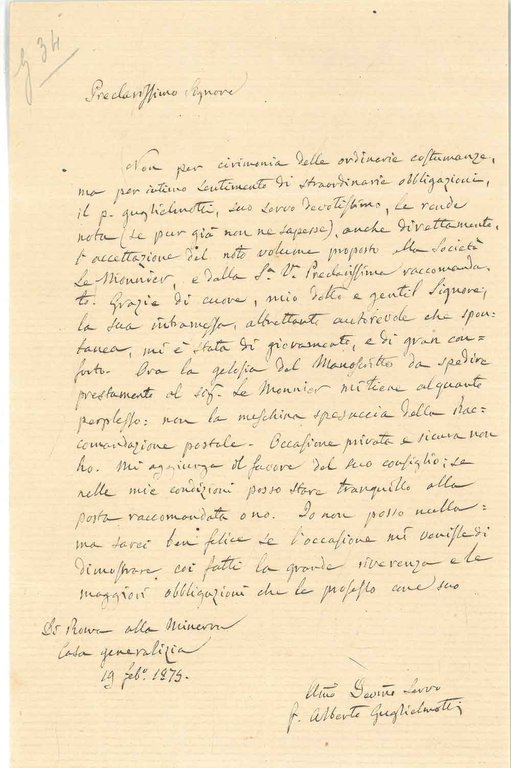 G 34
Preclarissimo Signore
Non per cirimonia delle ordinarie costumanze,
ma per intimo sentimento di straordinarie obbligazioni,
il p. Guglielmotti, suo servo devotissimo, le rende
nota (se pur già non ne sapesse), anche direttamente,
l'accettazione del noto volume proposto alla Società
Le Monnier, e dalla S.a V.a Preclarissima raccomanda-
to. Grazie di cuore, mio dotto e gentil Signore;
la sua intramessa, altrettanto autorevole che spon-
tanea, mi è stata di giovamento, e di gran con=
forto. Ora la gelosia del Manoscritto da spedire
prestamente al sig. Le Monnier mi tiene alquanto
perplesso: non la meschina spesuccia della Rac=
comandazione postale. Occasione privata e sicura non
ho. Mi aggiunga il favore del suo consiglio; se
nelle mie condizioni posso stare tranquillo alla
posta raccomandata o no. Io non posso nulla=
ma sarei ben felice se l'occasione mi venisse di
dimostrare coi fatti la grande riverenza e le
maggiori obbligazioni che le professo come suo
Di Roma alla Minerva
Casa generalizia
19 feb.o 1875.
Devmo Servo
f. Alberto Guglielmotti